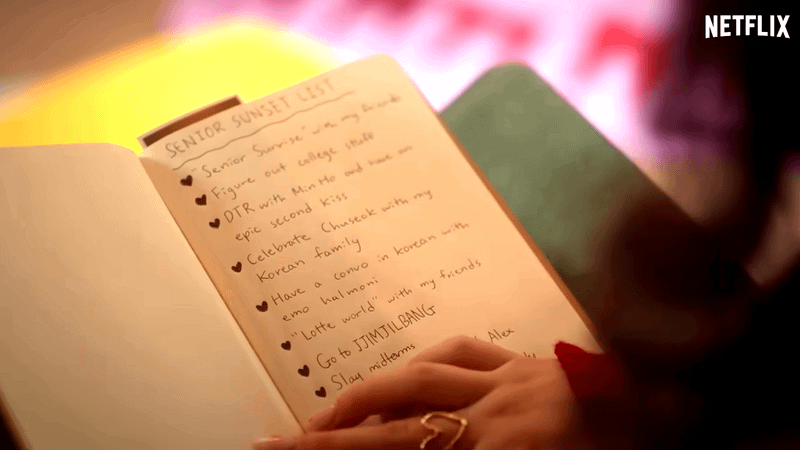 NETFLIX
SENIOR SUNSET LIST
"Senior Sunrise" with my friends
Figure out college stuff
DTR with Min Ho and have an
epic second kiss
Celebrate Chuseok with my
Korean family
Have a convo in korean with
emo halmoni
"Lotte world" with my friends
Go to JJIMJILBANG
Slay midterms
Alex